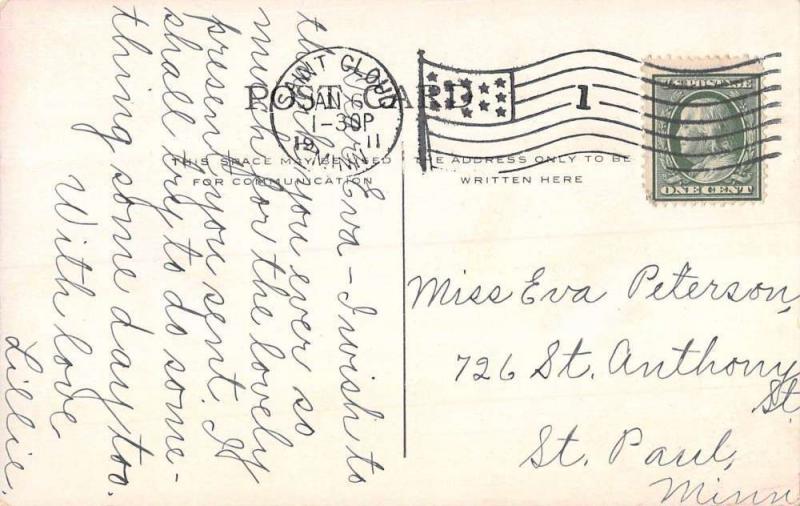 POST CARD
THIS SPACE MAY BE USED
FOR COMMUNICATION
THE ADDRESS ONLY TO BE
WRITTEN HERE
SAINT CLOUD
JAN 6
1-30P
1911
MINN.
1
ONE CENT
Dear Eva - I wish to
thank you ever so
much for the lovely
present you sent. I
shall try to do some-
thing some day too.
With love
Lillie.
Miss Eva Peterson,
726 St. Anthony
St.
St. Paul,
Minn